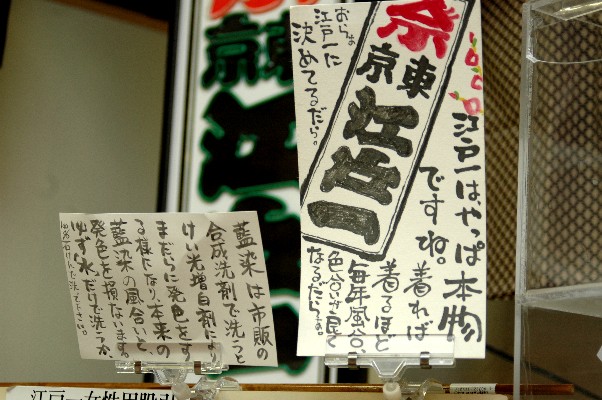 祭
東京
江戸一
おらぁ
江戸一に
決めてるだら。
江戸一は、やっぱ本物
ですね。着れば
着るほど
毎年風合
色合いが良くて
なるだらぁ。
藍染は市販の
合成洗剤で洗うと
けい光増白剤により
まだらに発色をす
る様になり、本来の
藍染の風合いと、
発色を損ないます。
ゆず水だけで洗うか、
京
東
江